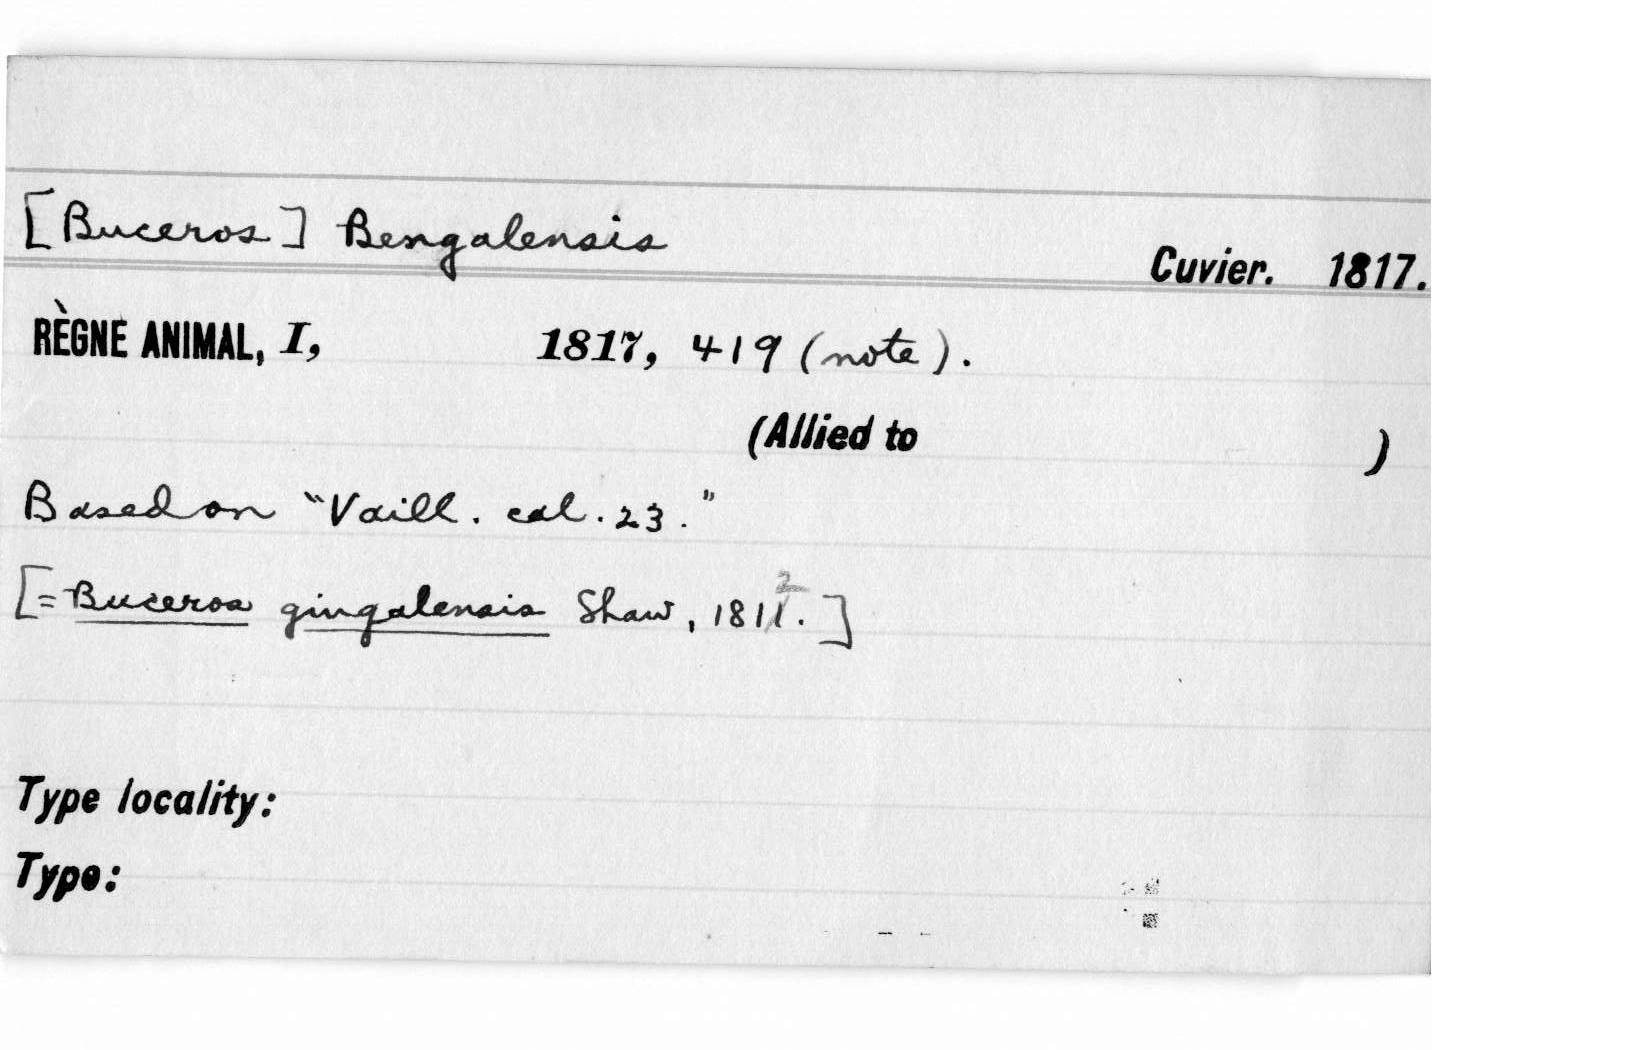 [Buceros] Bengalensis
Cuvier. 1817.
RÈGNE ANIMAL, I, 1817, 419 (note).
(Allied to )
Based on "Vaill. cal. 23."
[= Buceros gingalensis Shaw, 1812.]
Type locality:
Type: